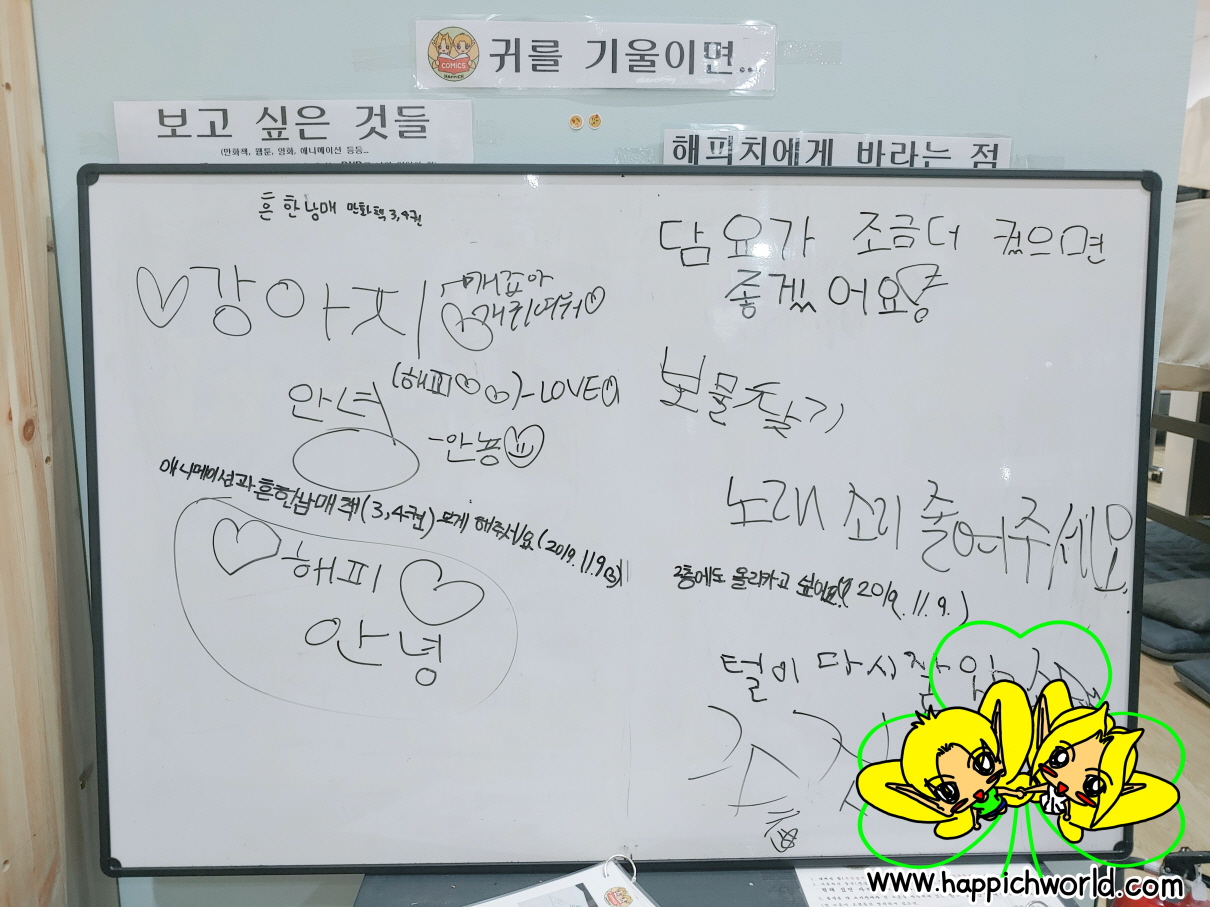 귀를 기울이면...
COMICS
HAPPICH
보고 싶은 것들
(만화책, 웹툰, 영화, 애니메이션 등등...
해피치에게 바라는 점
흔한남매 만화책 3,4권
강아지
안녕
(해피
)-LOVE
-안뇽
애니메이션과 흔한남매 책(3,4권) 보게 해주세요(2019.11.9
해피
안녕
담요가 조금더 컸으면
좋겠어요
보물찾기
노래 소리 줄여주세요.
2층에도 올라가고 싶어요!(2019.11.9.)
털이 다시 잘
www.happichworld.com